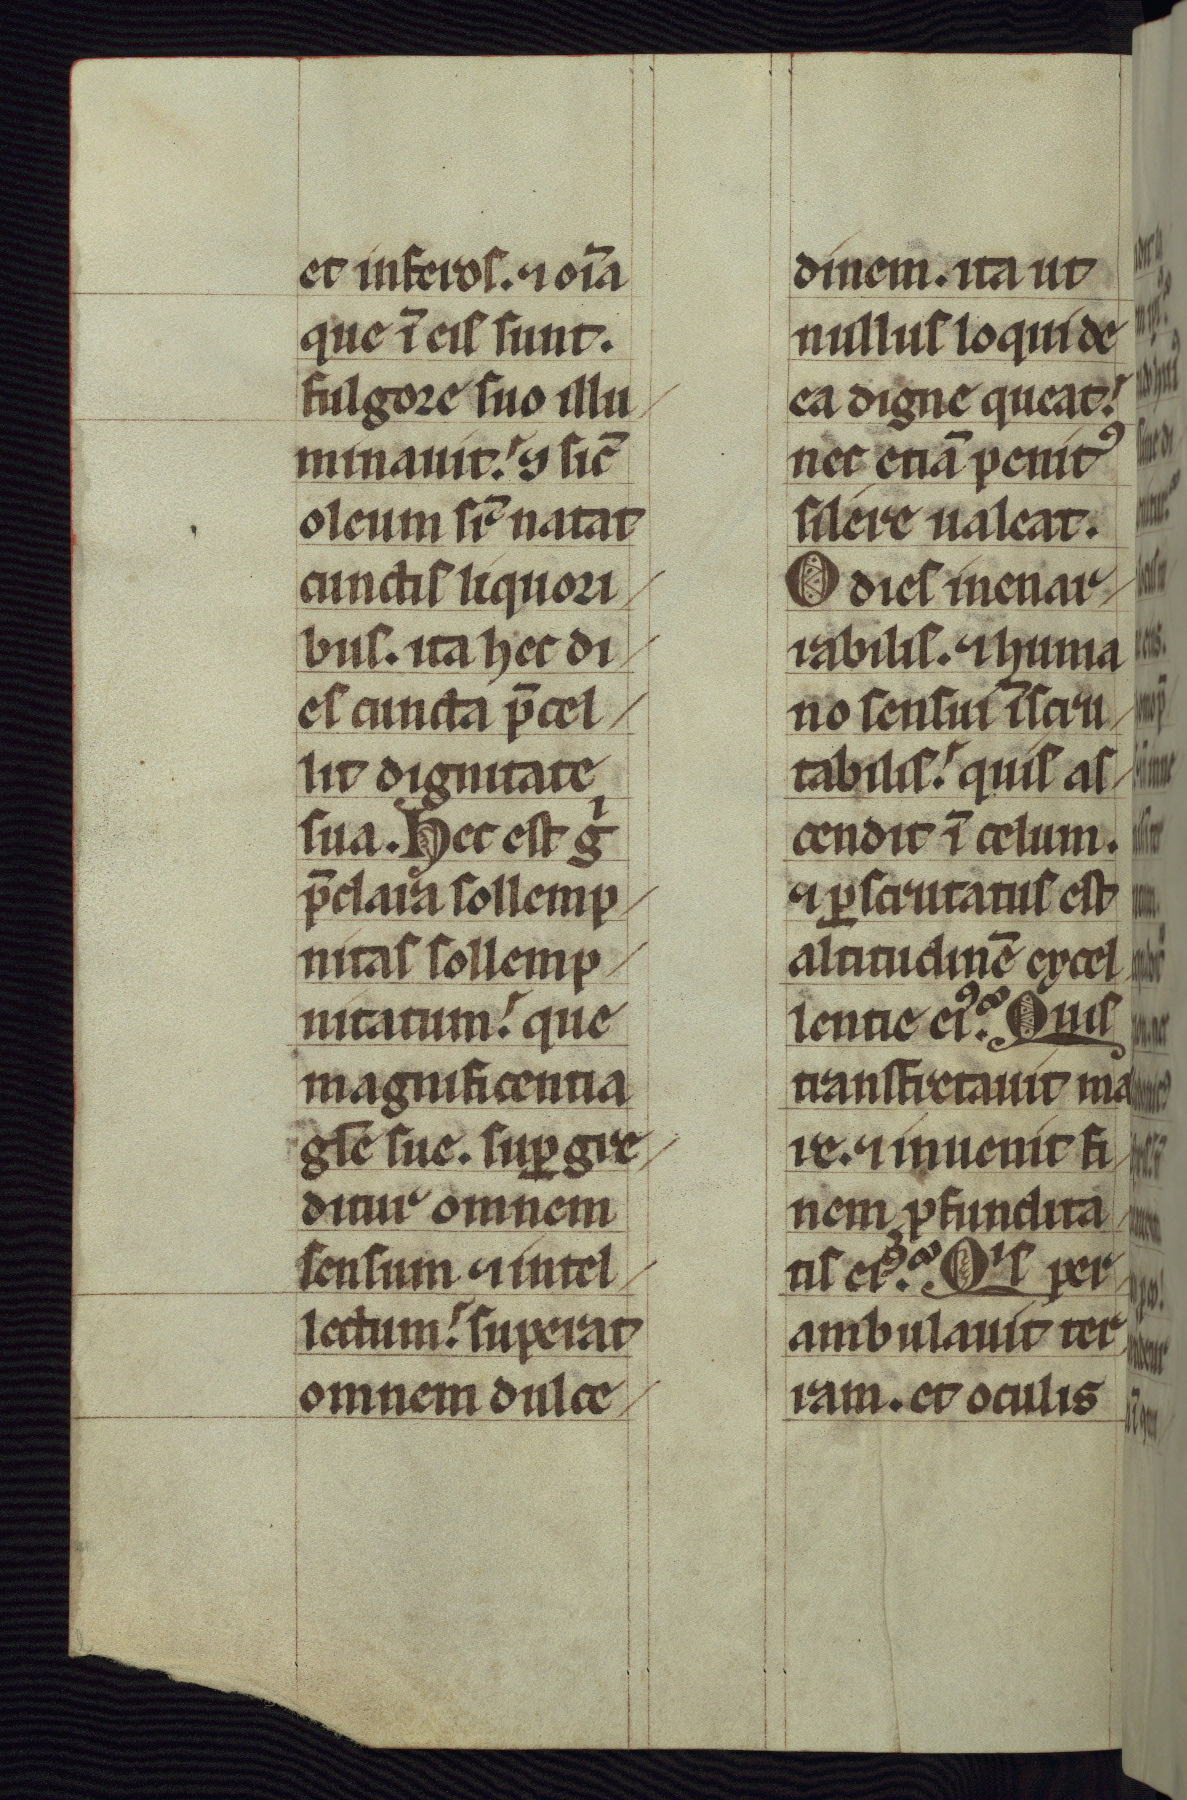 et inferos. ⁊ oīa
que ī eis sunt.
fulgore suo illu
minauit. ꝯ sic̄
oleum sr̄ natat
cunctis liquori
bus. ita hec di
es cuncta p̄cel
lit dignitate
sua. Hec est gͥ
p̄clara sollemp
nitas sollemp
nitatum. que
magnificentia
gl̄e sue. suꝑgre
ditur omnem
sensum ⁊ intel
lectum. superat
omnem dulce
dinem. ita ut
nullus loqui de
ea digne queat.
nec etiā penitꝰ
silere ualeat.
O dies inenar
rabilis. ⁊ huma
no sensui īscru
tabilis. quis as
cendit ī celum.
⁊ ꝑscrutatus est
altitudinē excel
lentie eiꝰ. Quis
transfretauit ma
re. ⁊ inuenit fi
nem ꝓfundita
tis eiꝰ. Qͥs per
ambulauit ter
ram. et oculis